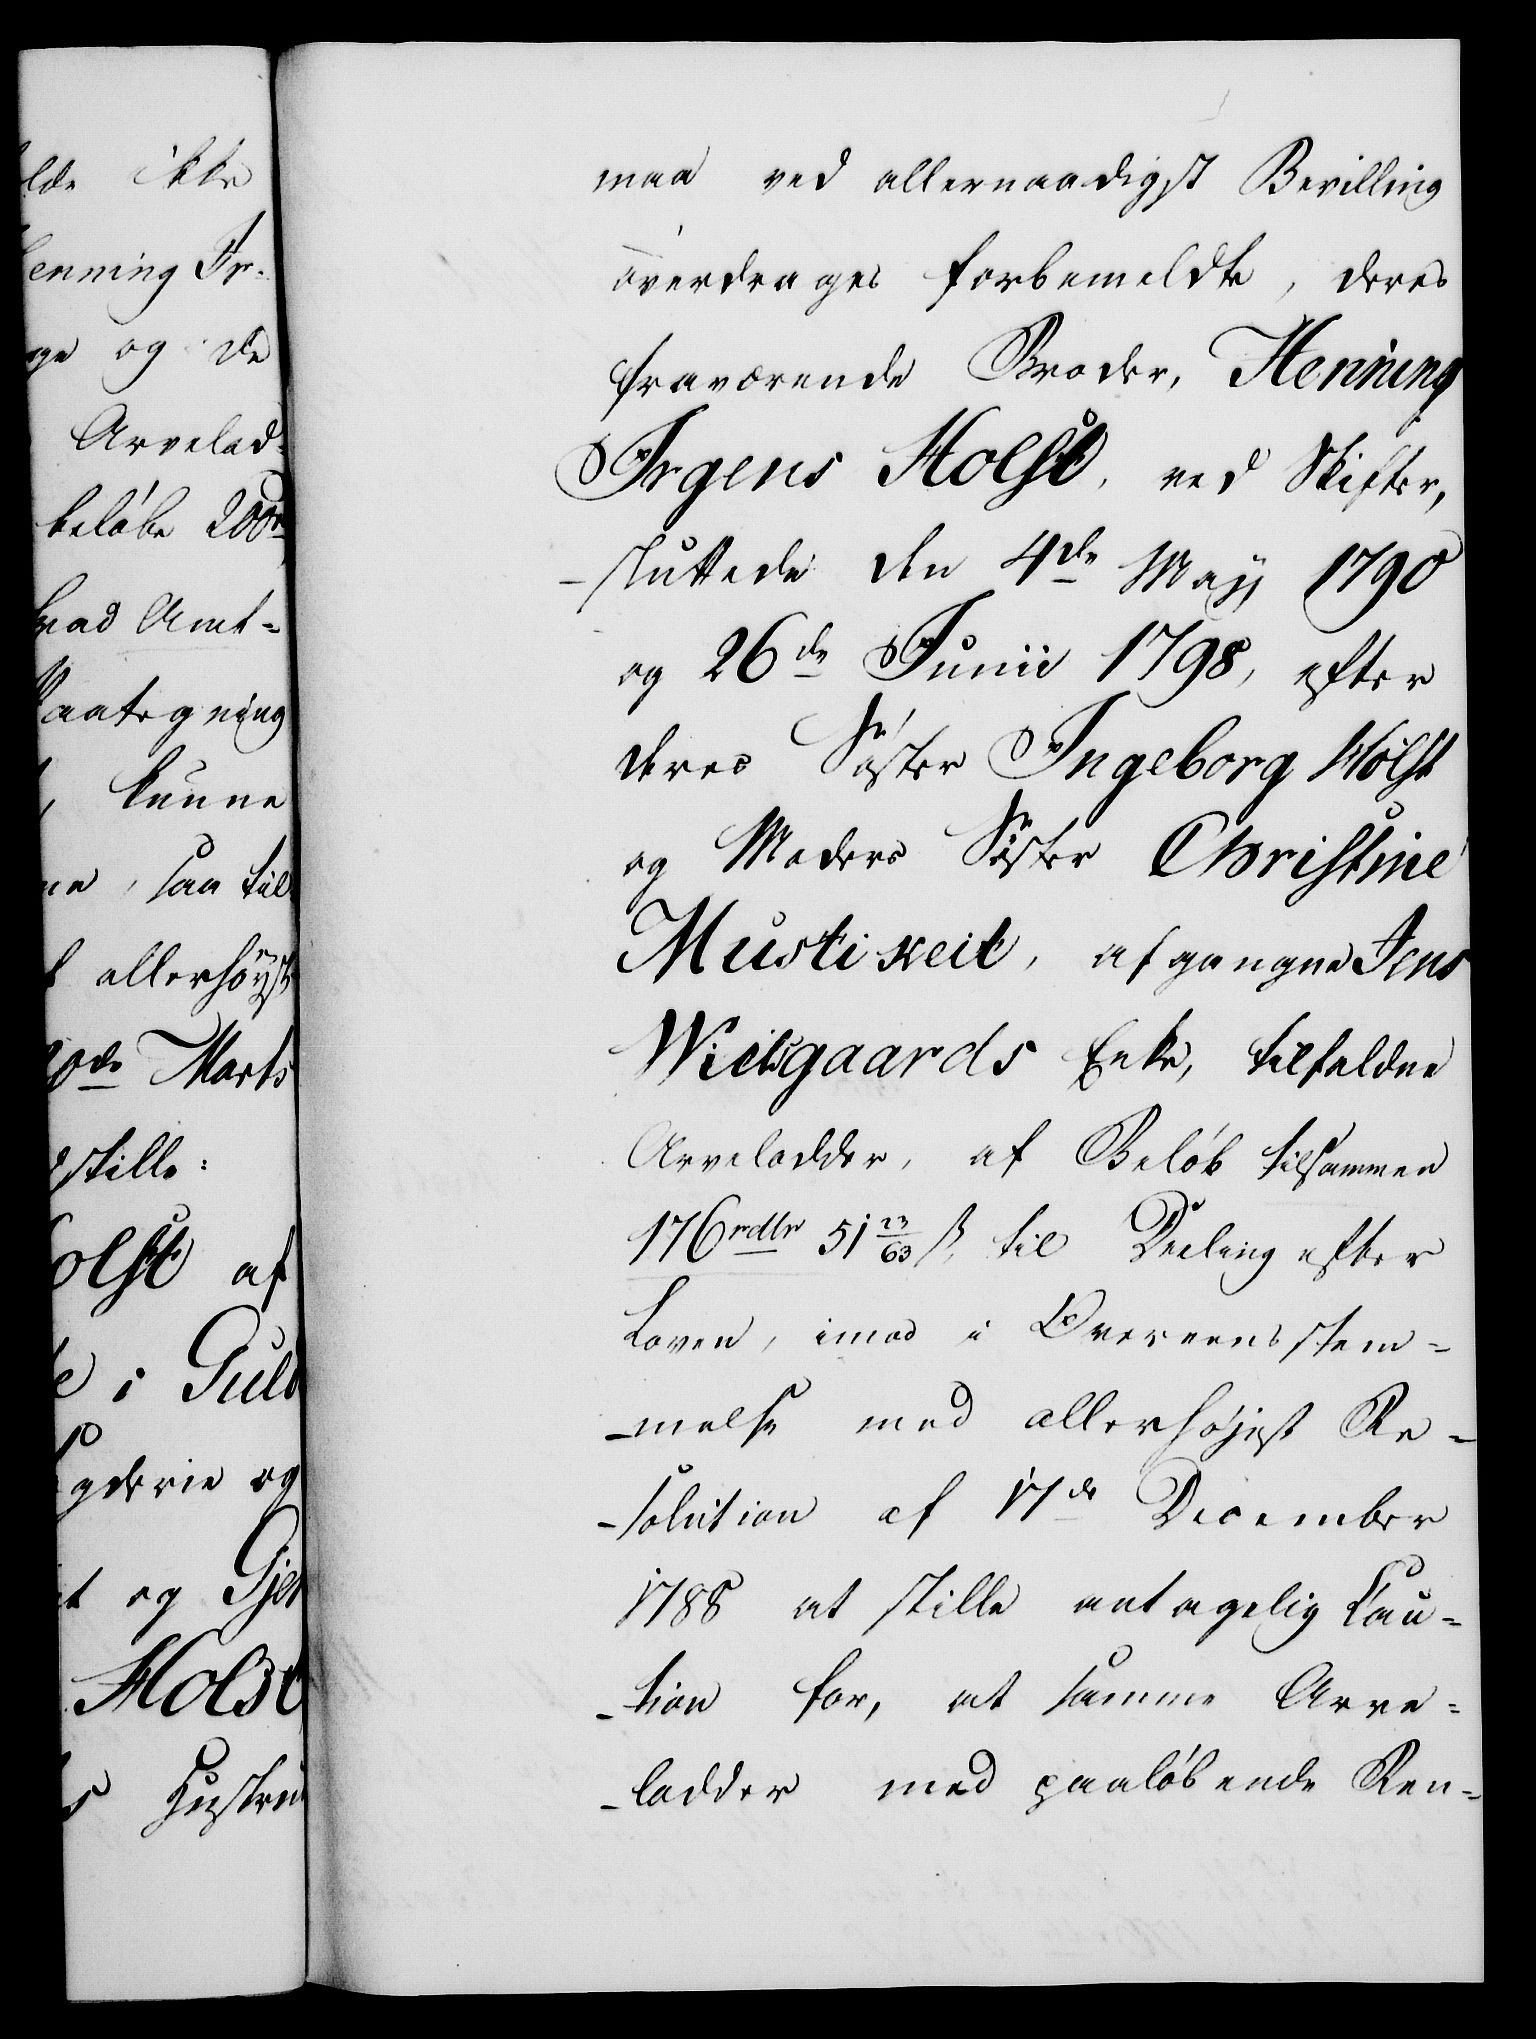 lde ikke
enning Fr-
ge og de
Arvelod-
beløbe 200
hvad Amt-
Paategning
kunne
ne, saa til
t allerhøyst
de Marts
stille:
olst af
e i Guld
gderie og
t og Gje
Holst
s Hustru
maa ved allernaadigst Bevilling
overdrages forbemeldte, deres
fraværende Broder, Henning
Irgens Holst, ved Skifter,
-sluttede den 4de Maji 1790
og 26de Junii 1798, efter
deres Søster Ingeborg Holst
og Moders Søster Christine
Mustixeit, afgangne Jens
Wielsgaards Enke, tilfaldne
Arvelodder, af Beløb tilsammen
176rdlr 51 23/63 ß, til Deeling efter
Loven, imod i Overeensstem-
-melse med allerhøjest Re-
-solution af 17de December
1788 at stille antagelig Cau-
-tion for, at samme Arve-
-lodder med paaløbende Ren-